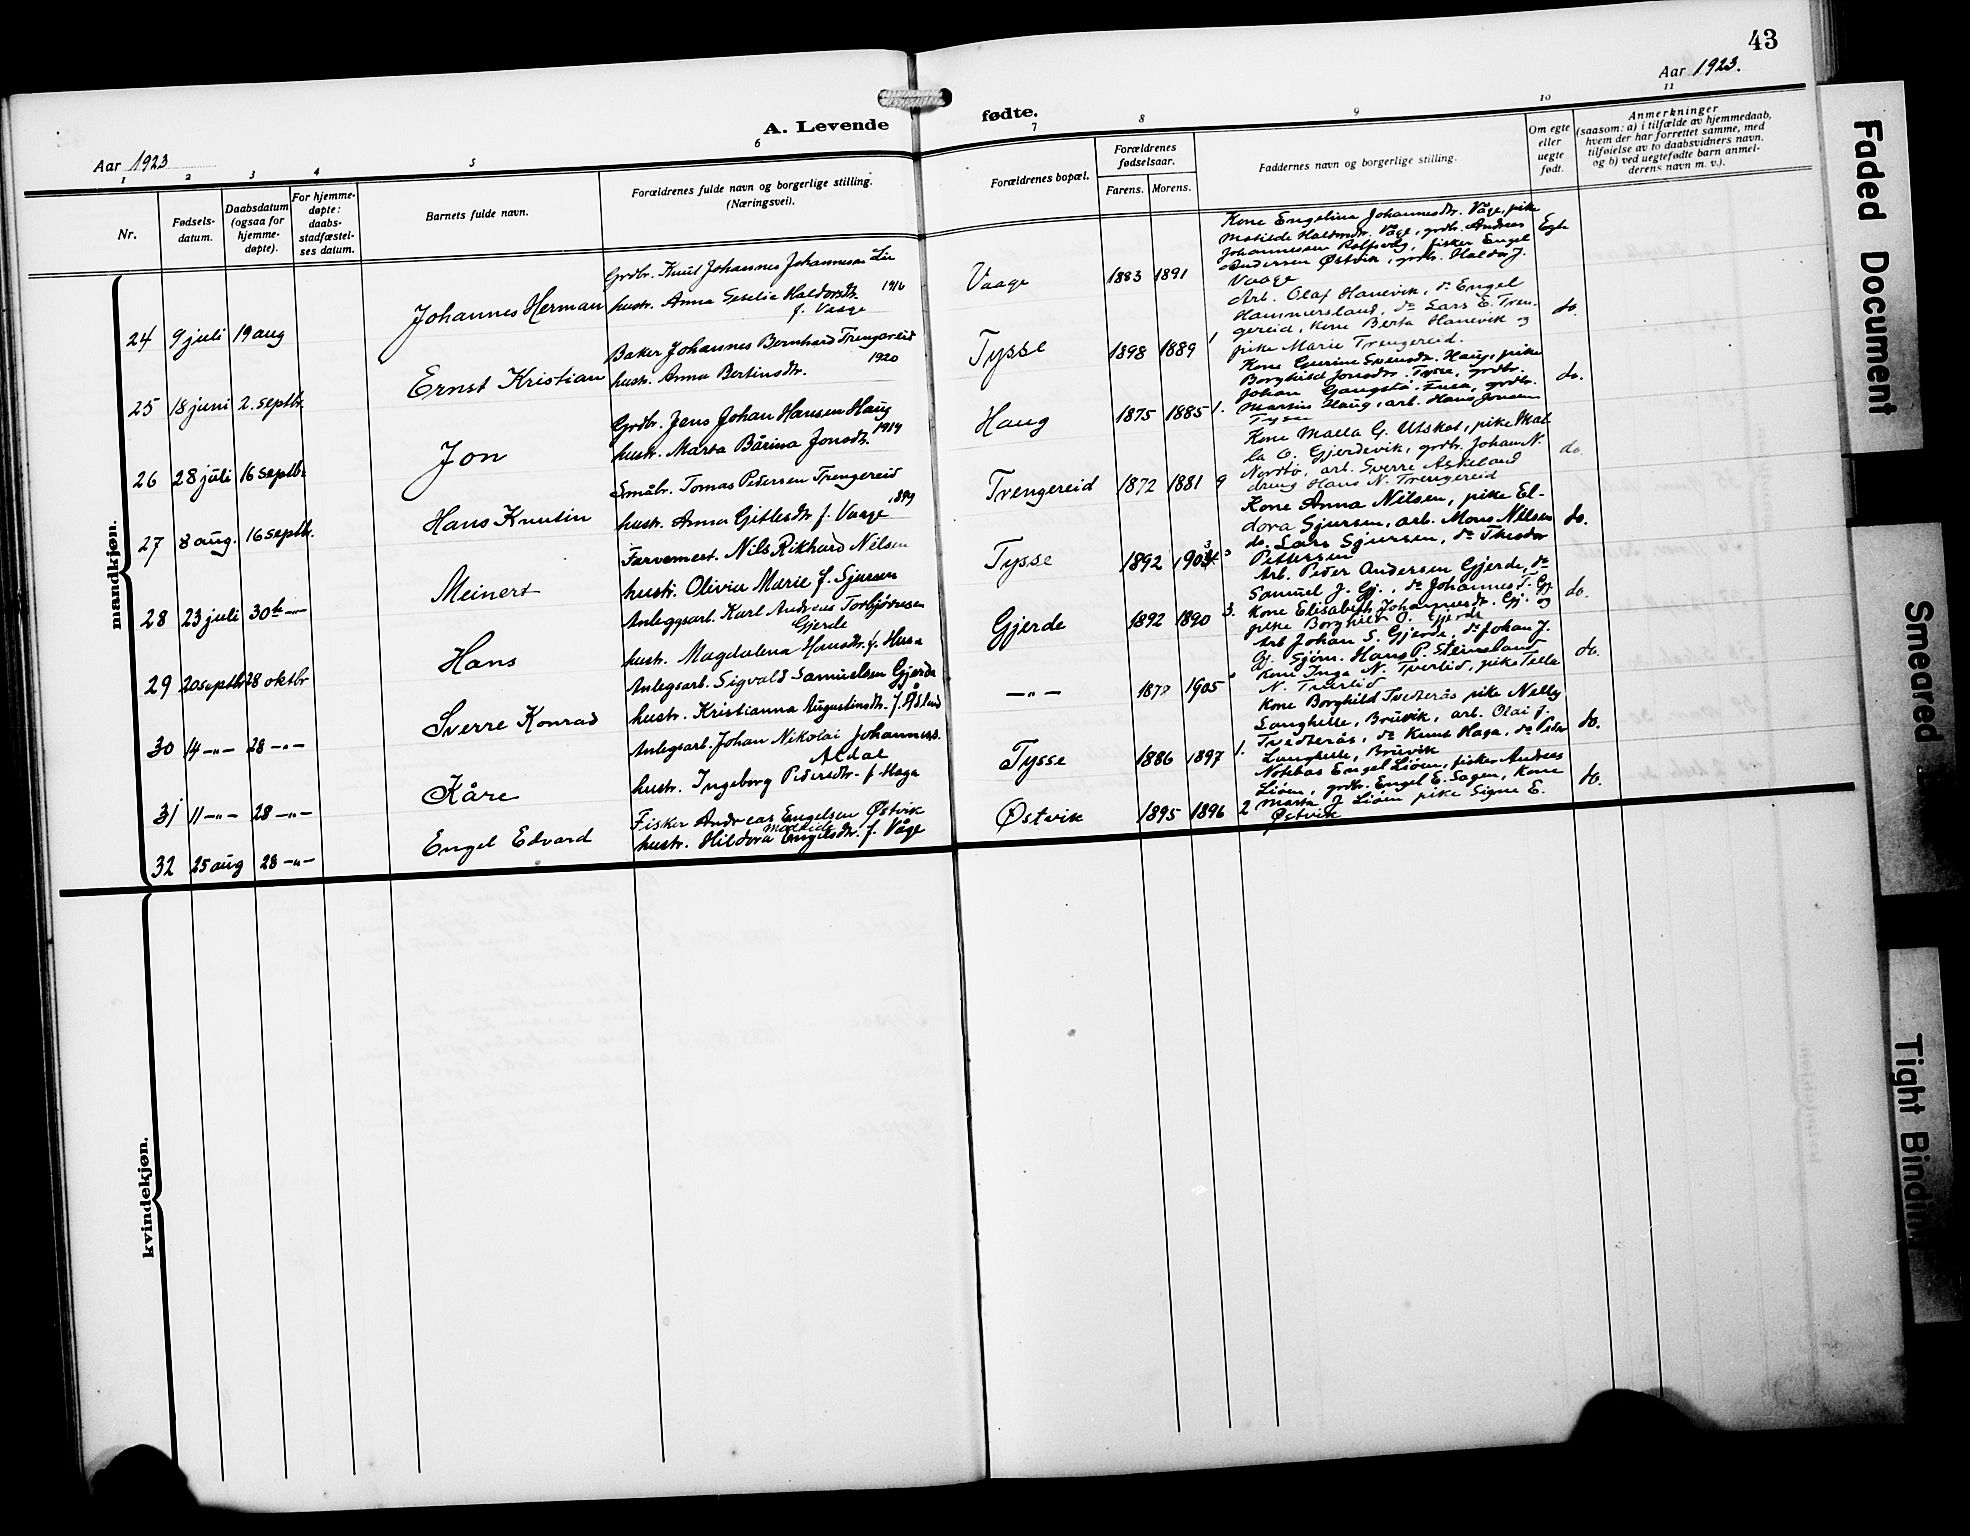 43
Aar 1923.
Aar 1923
A. Levende
fødte.
1
2
3
4
5
6
7
8
9
10
11
Nr.
Fødsels-
datum.
Daabsdatum
(ogsaa for
hjemme-
døpte).
For hjemme-
døpte:
daabs-
stadfæstel-
ses datum.
Barnets fulde navn.
Forældrenes fulde navn og borgerlige stilling.
(Næringsvei).
Forældrenes bopæl.
Forældrenes
fødselsaar.
Farens.
Morens.
Faddernes navn og borgerlige stilling.
Om egte
eller
uegte
født.
Anmerkninger
(saasom: a) i tilfælde av hjemmedaab,
hvem der har forrettet samme, med
tilføielse av to daabsvidners navn.
og b) ved uegtefødte barn anmel-
derens navn m. v.).
mandkjøn.
24 9 juli 19 aug
Johannes Herman
Grdbr. Knut Johannes Johannesen Lie
hustr. Anna Geselie Haldorsdtr. 1916
f. Vaage
Vaage
1883 1891
Kone Engelina Johannesdtr. Våge, pike
Matilde Haldorsdtr. Våge, grdbr. Andreas
Johannessen Rolfsvåg, fisker Engel
Andersen Østvik, grdbr. Haldor J.
Vaage
Egte
25 18 juni 2. septbr.
Ernst Kristian
Baker Johannes Bernhard Trengereid
hustr. Anna Bertinsdtr. 1920
Tysse
1898 1889 1
Arb. Olaf Hanevik, do Engel
Hammersland, do Lars E. Tren-
gereid, Kone Berta Hanevik og
pike Marie Trengereid.
do.
26 28 juli 16 septbr.
Jon
Grdbr. Jens Johan Hansen Haug
hustr. Marta Bårina Jonsdtr. 1914
Haug
1875 1885 1.
Kone Guerine Svensdtr. Haug, pike
Borghild Jonsdtr. Tysse, grdbr.
Johan Gaugstø, Fusa, grdbr.
Martin Haug, arb. Hans Jonsen
Tysse
do.
27 8 aug. 16 septbr.
Hans Knutin
Småbr. Tomas Pedersen Trengereid
hustr. Anna Gitlesdtr f. Vaage 1899
Trengereid
1872 1881 9
Kone Malla G. Utskot, pike Mal-
la O. Gjerdevik, grdbr. Johan N.
Nordbø, arb. Sverre Askeland
dreng Hans N. Trengereid
do.
28 23 juli 30te —"—
Meinert
Farvemest. Nils Rikhard Nilsen
hustr. Olivia Marie f. Sjursen
Tysse
1892 1903
Kone Anna Nilsen, pike El-
dora Sjursen, arb. Mons Nilsen
do. Lars Sjursen, do Theodor
Pettersen
do.
29 20 septbr 28 oktbr
Hans
Anleggsarb. Karl Andreas Torbjørnsen
Gjerde
hustr. Magdalena Hansdtr. f. Husa
Gjerde
1892 1890 3.
Arb. Peder Andersen Gjerde, do
Samuel J. Gj., do Johannes T. Gj.
Kone Elisabeth Johannesdtr. Gj. og
pike Borghild O. Gjerde
do.
30 14 —"— 28 —"—
Sverre Konrad
Anlegsarb. Sigvald Samuelsen Gjerde
hustr. Kristianna Augustinsdtr. f. Åsland
—"—
1877 1905
Arb Johan S. Gjerde, do Johan J.
Gj. Sjøm. Hans P. Steinsland
Kone Inga N. Tverlid, pike Tella
N. Tverlid
do.
31 11 —"— 28 —"—
Kåre
Anlegsarb. Johan Nikolai Johanness.
Aldal
hustr. Ingeborg Pedersdtr. f. Haga
Tysse
1886 1897 1.
Kone Borghild Tvedterås pike Nelly
Langhelle, Bruvik, arb. Olai J.
Tvedterås, do Knut Haga, do Peder
Langhelle, Bruvik
do.
32 25 aug 28 —"—
Engel Edvard
Fisker Andreas Engelsen Østvik
Matilde
hustr. Hildora Engelsdtr. f. Våge
Østvik
1895 1896 2
Notebas Engel Liøen, fisker Andreas
Liøen, grdbr. Engel E. Sagen, Kone
Marta J Liøen pike Signe E.
Østvik
do.
kvindekjøn.
Faded Document
Smeared
Tight Bindin